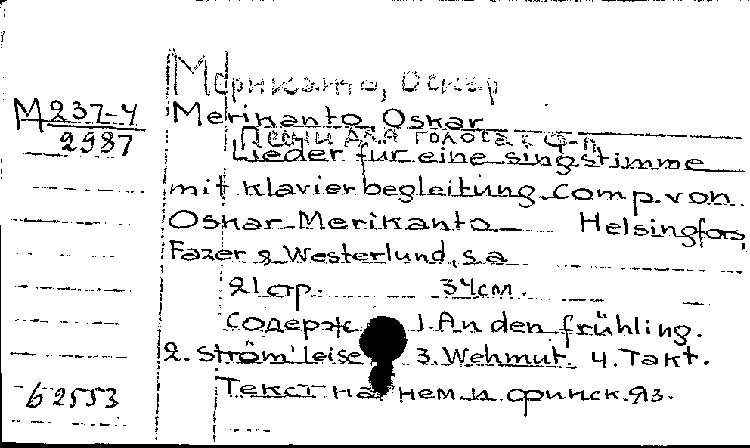 Мерикато, Оскар
М 237-4 Merikanto, Oskar
2987 Песни для голоса с ф-п
Lieder für eine singstimme
mit Klavierbegleitung. Comp. von
Oskar Merikanto Helsingfors,
Fazer & Westerlund, s.a
21 стр. 34см.
Содерж 1. An den frühling.
2. Ström' leise 3. Wehmut. 4. Takt.
б 2553 Текст на нем. и финск. яз.